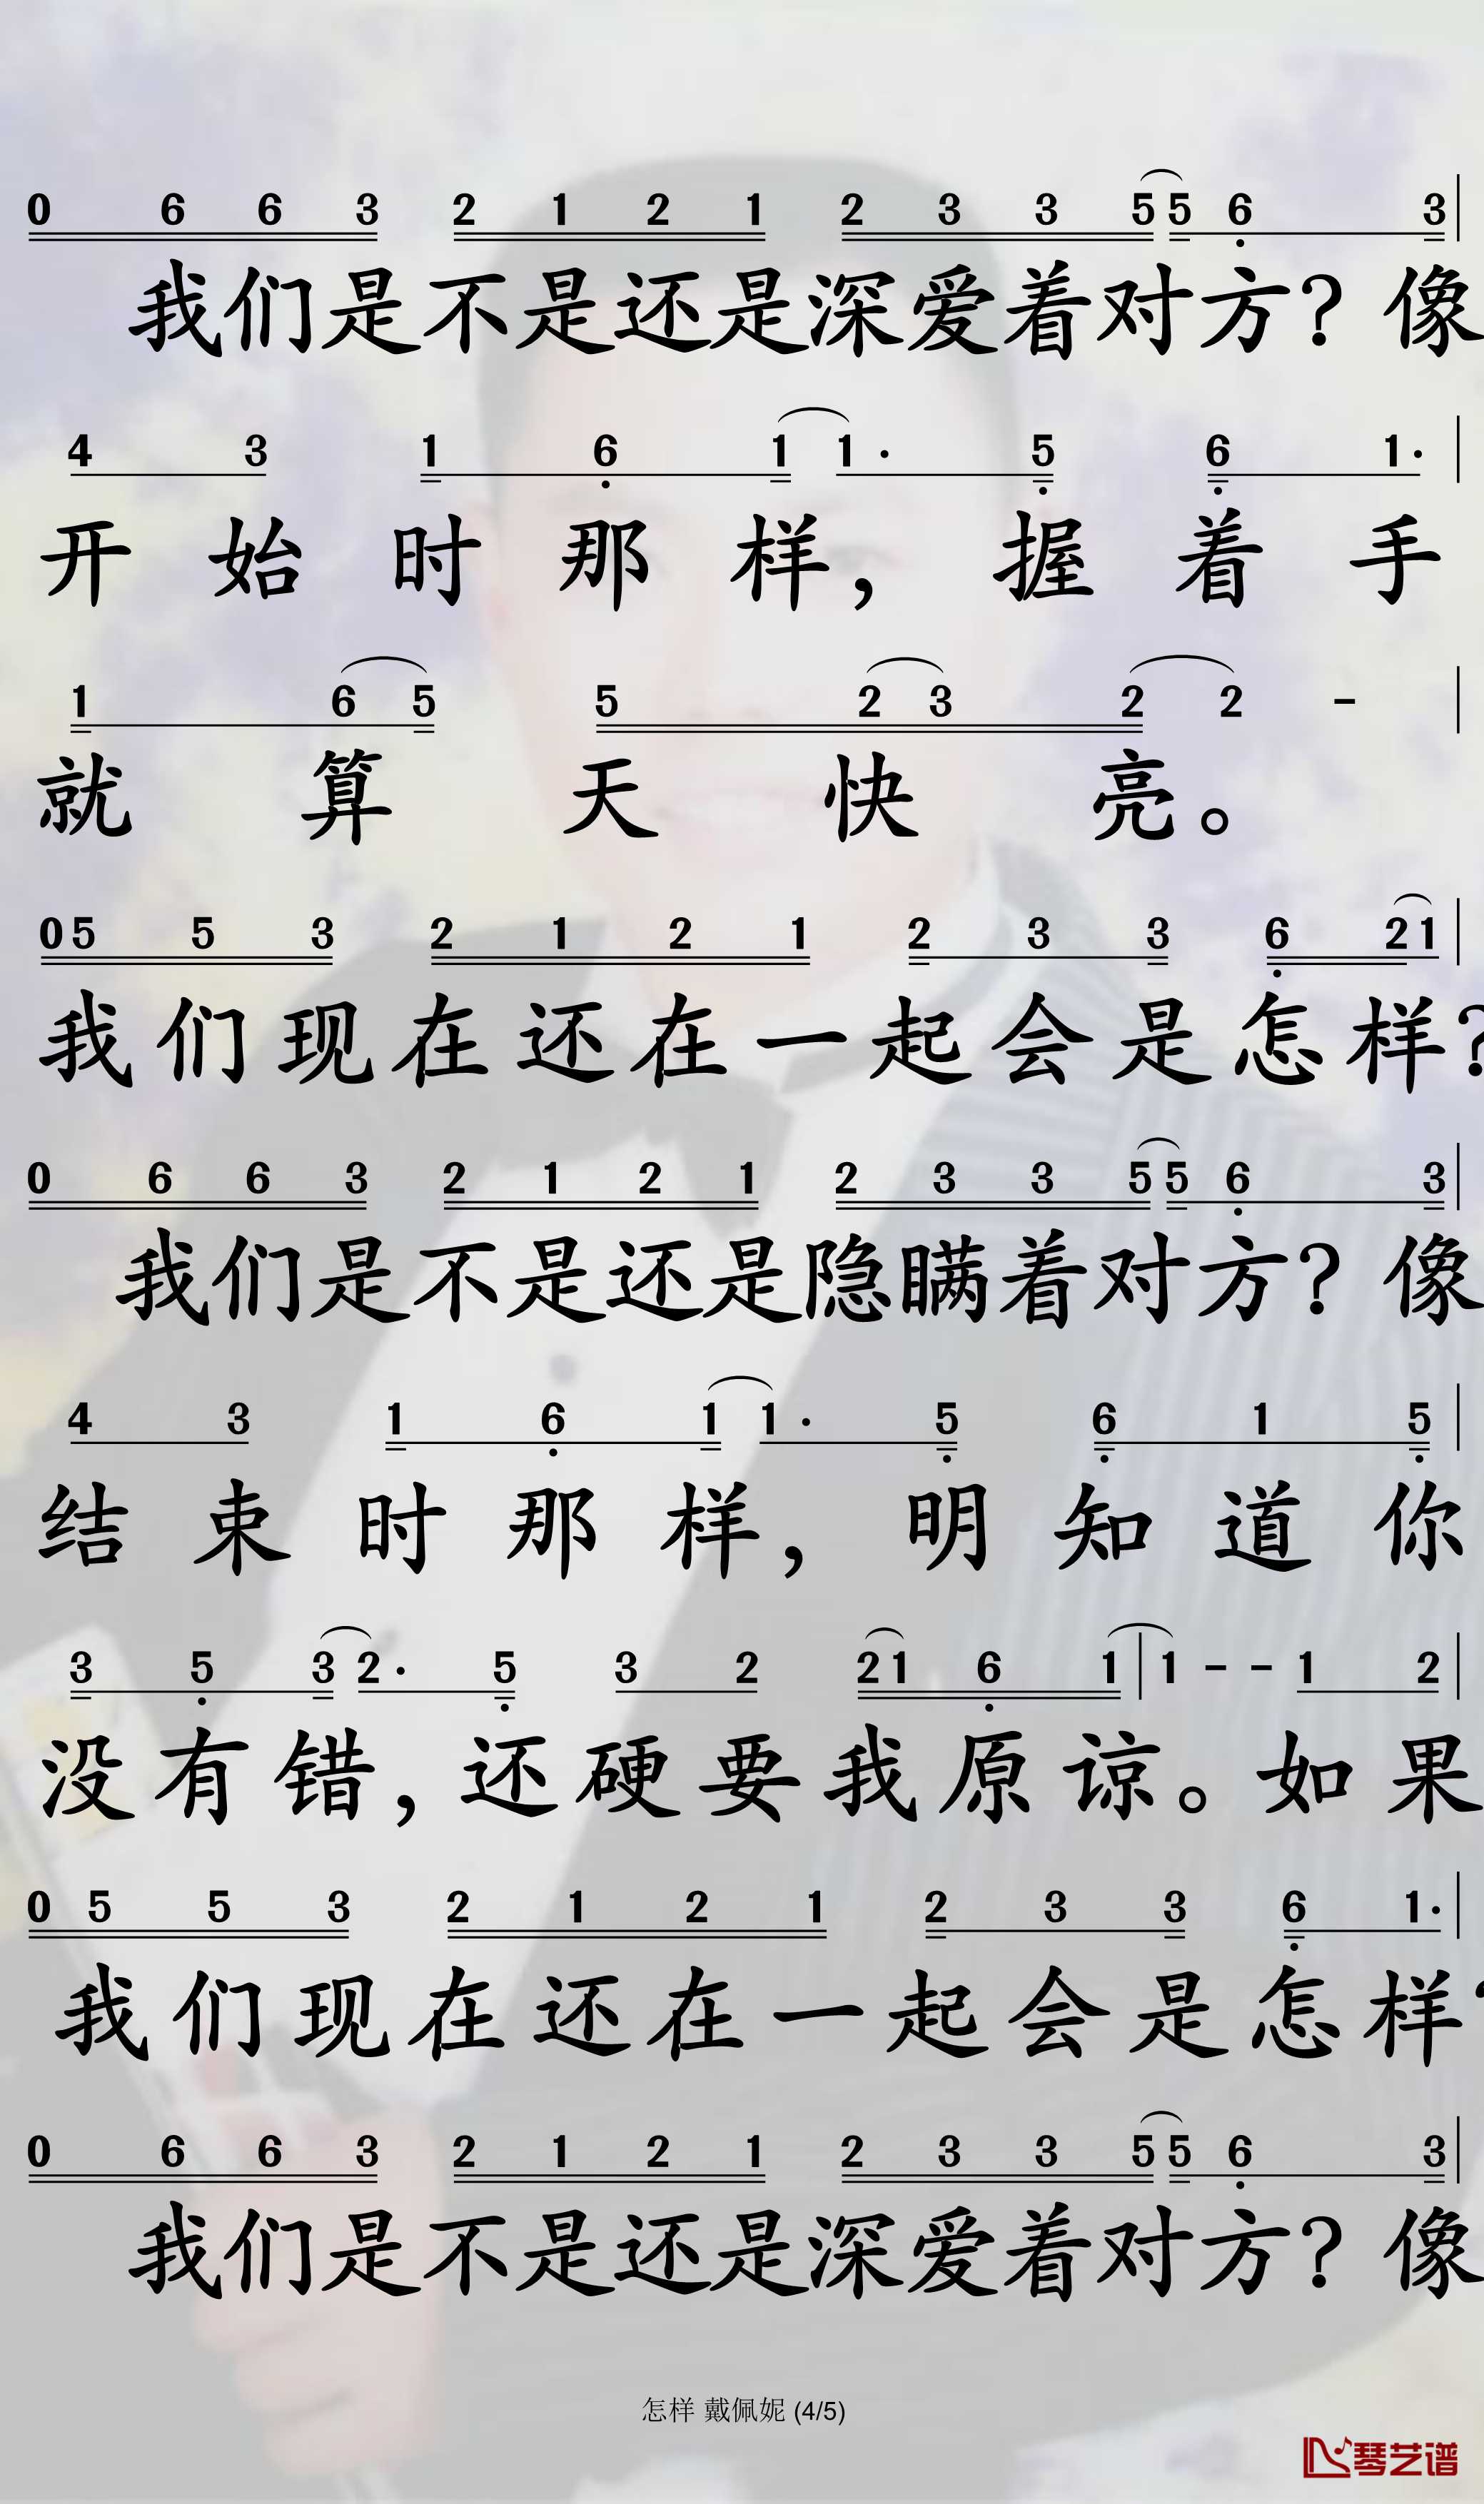 0 6 6 3 2 1 2 1 2 3 3 5 5 6 3
我们是不是还是深爱着对方？像
4 3 1 6 1 1· 5 6 1·
开始时那样，握着手
1 6 5 5 2 3 2 2 -
就算天快亮。
0 5 5 3 2 1 2 1 2 3 3 6 2 1
我们现在还在一起会是怎样？
0 6 6 3 2 1 2 1 2 3 3 5 5 6 3
我们是不是还是隐瞒着对方？像
4 3 1 6 1 1· 5 6 1 5
结束时那样，明知道你
3 5 3 2· 5 3 2 2 1 6 1 | 1 - - 1 2
没有错，还硬要我原谅。如果
0 5 5 3 2 1 2 1 2 3 3 6 1·
我们现在还在一起会是怎样？
0 6 6 3 2 1 2 1 2 3 3 5 5 6 3
我们是不是还是深爱着对方？像
怎样 戴佩妮 (4/5)
琴艺谱